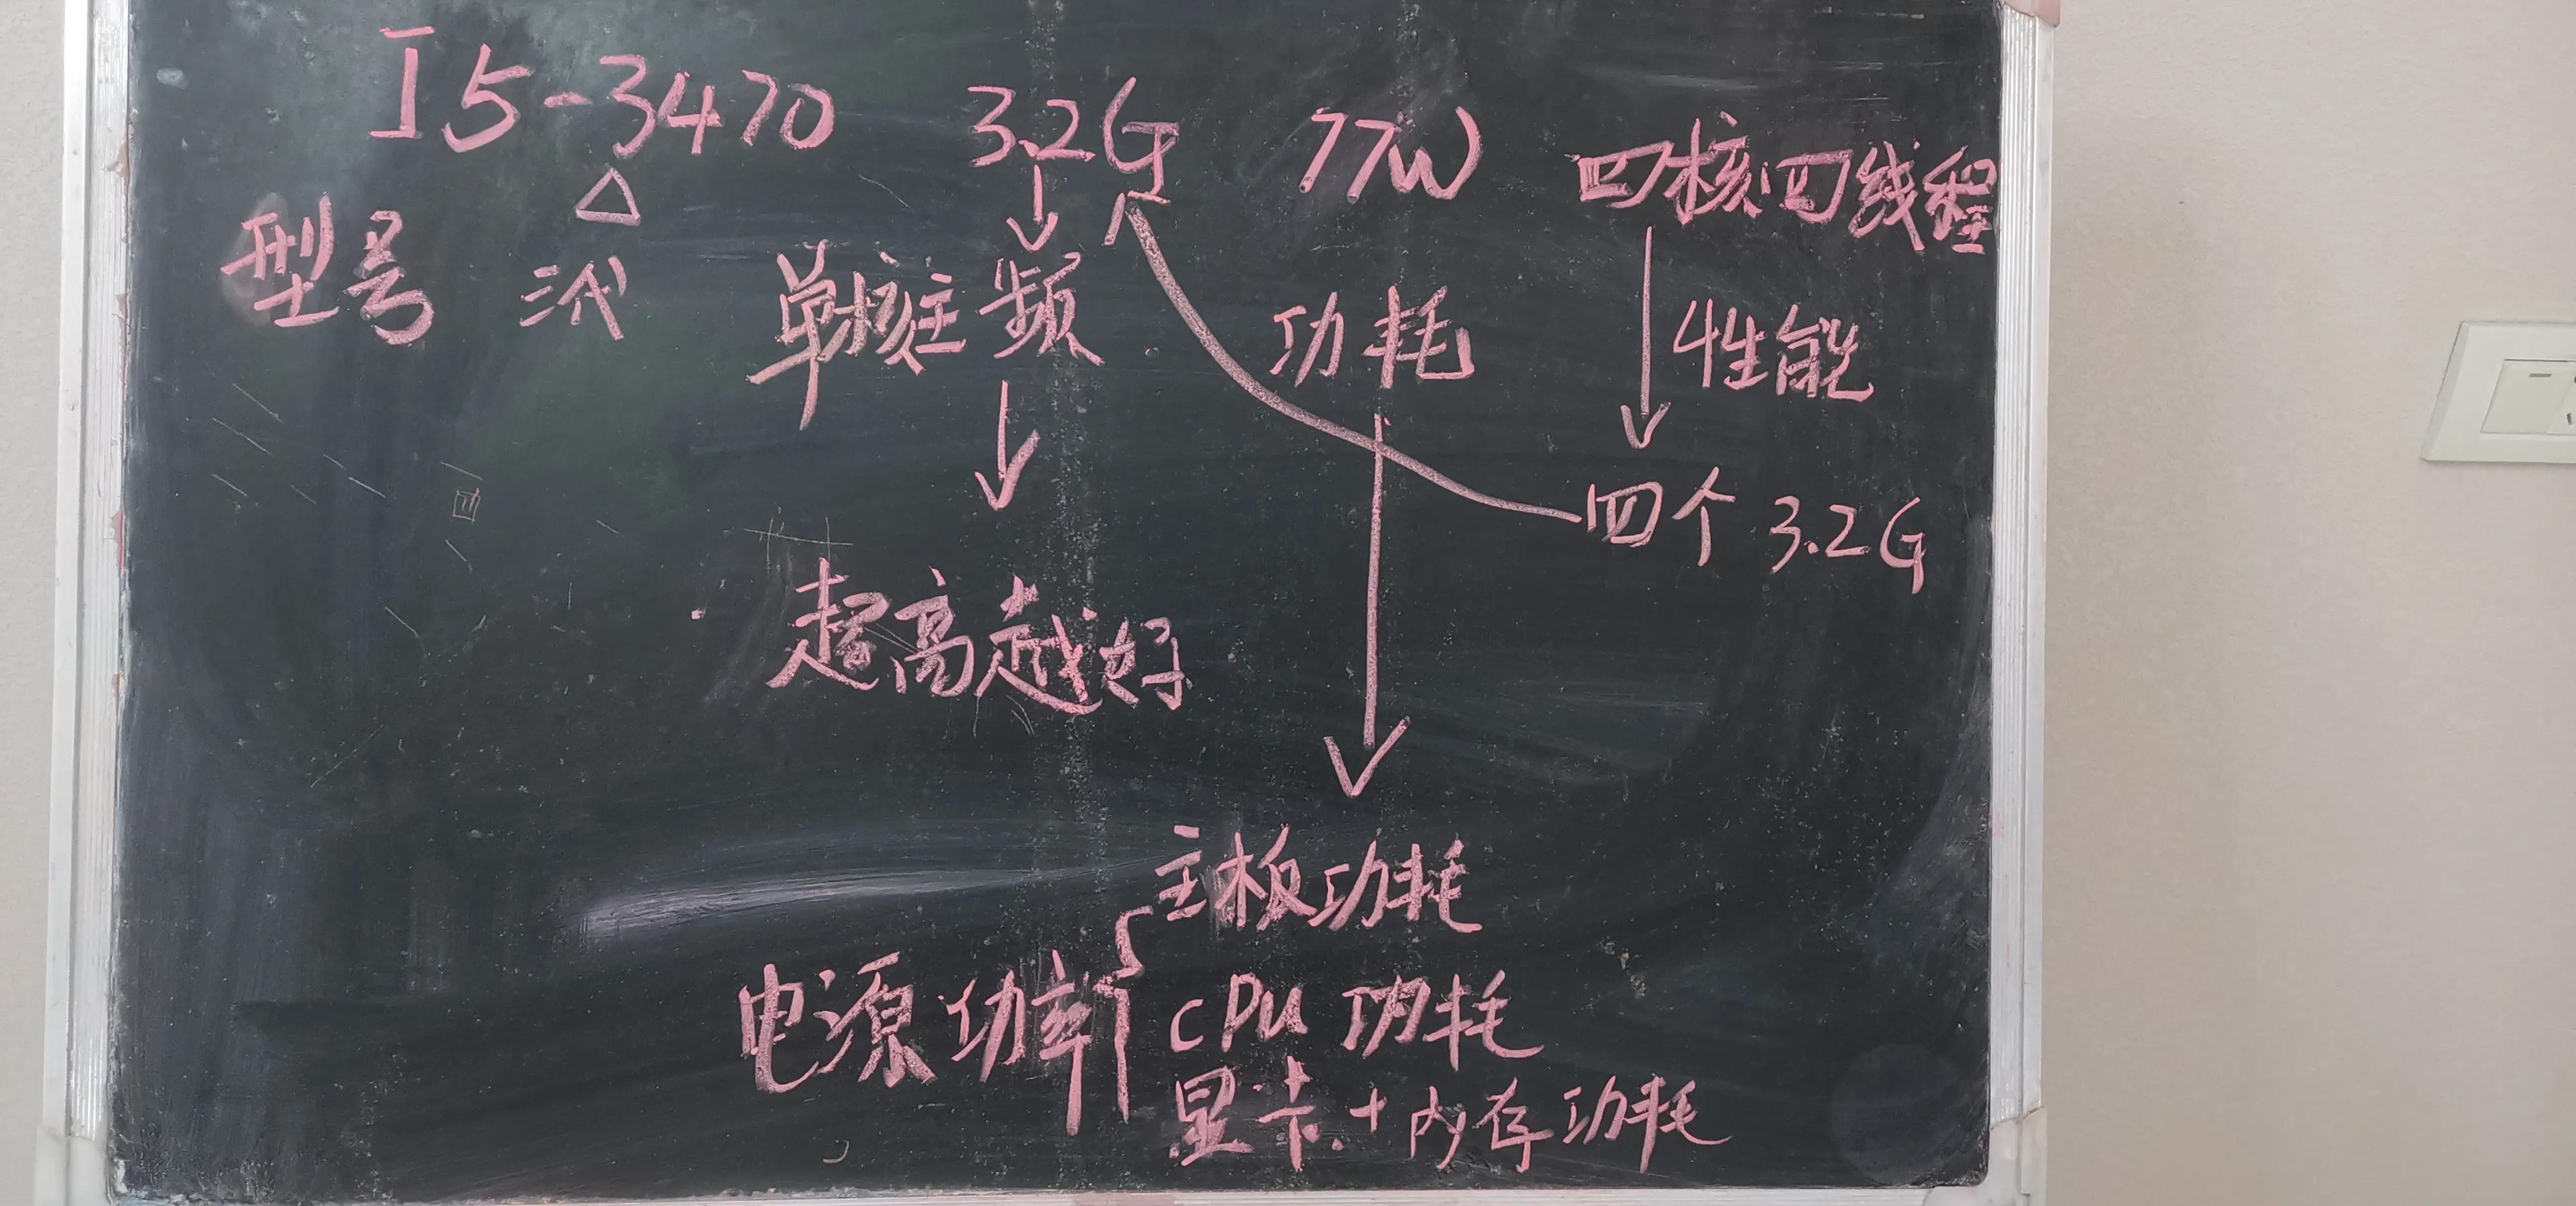 I5-3470 3.2G 77W 四核四线程
型号 三代 单核主频 功耗 性能
四个 3.2G
超高越好
主板功耗
电源功率 CPU 功耗
显卡+内存功耗